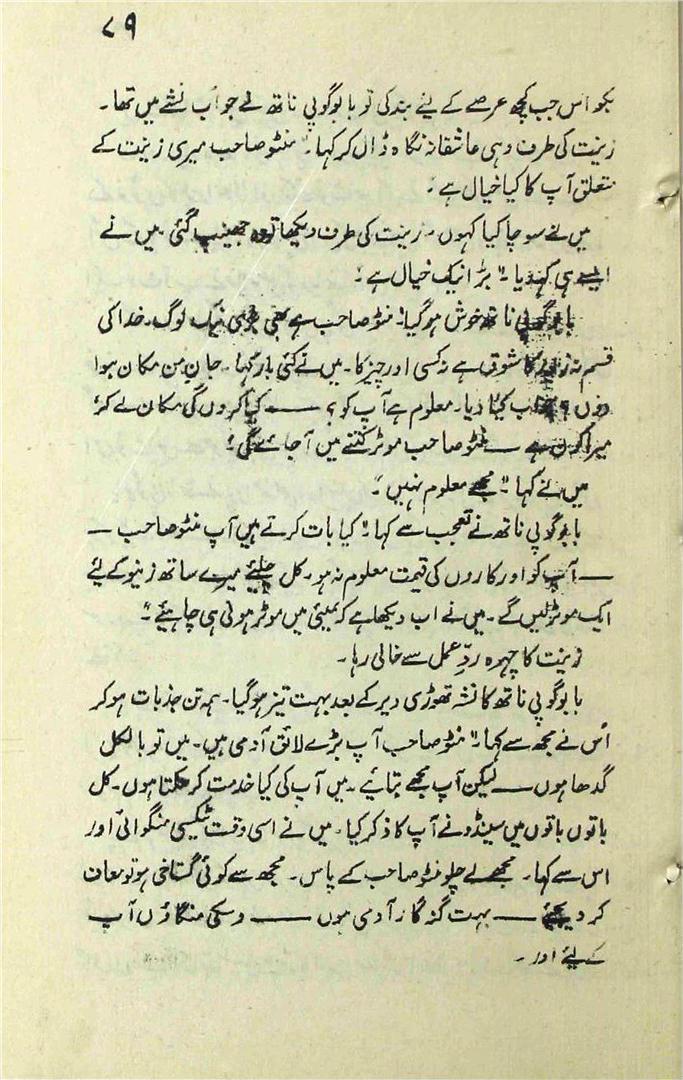 ۷۹
بکواس جب کچھ عرصے کے لئے بند کی تو بابو گوپی ناتھ نے جو اَب نشے میں تھا۔
زینت کی طرف وہی عاشقانہ نگاہ ڈال کر کہا۔" منٹو صاحب میری زینت کے
متعلق آپ کا کیا خیال ہے۔
میں نے سوچا کیا کہوں۔ زینت کی طرف دیکھا تو وہ جھینپ گئی۔ میں نے
ایسے ہی کہہ دیا۔" بڑا نیک خیال ہے"۔
بابو گوپی ناتھ خوش ہو گیا" منٹو صاحب ہے بھی بڑی نیک لوگ۔ خدا کی
قسم نہ زیور کا شوق ہے نہ کسی اور چیز کا۔ میں نے کئی بار کہا۔ جانِ من مکان بنوا
دوں؟ جواب کیا دیا۔ معلوم ہے آپ کو؟ —— کیا کروں گی مکان لے کر
میرا کون ہے — منٹو صاحب موٹر کتنے میں آجائے گی"؟
میں نے کہا" مجھے معلوم نہیں"۔
بابو گوپی ناتھ نے تعجب سے کہا" کیا بات کرتے ہیں آپ منٹو صاحب —
— آپ کو اور کاروں کی قیمت معلوم نہ ہو۔ کل چلئے میرے ساتھ زینو کے لئے
ایک موٹر لیں گے۔ میں نے اب دیکھا ہے کہ بمبئی میں موٹر ہونی ہی چاہیئے"۔
زینت کا چہرہ ردِّ عمل سے خالی رہا۔
بابو گوپی ناتھ کا نشہ تھوڑی دیر کے بعد بہت تیز ہو گیا۔ ہمہ تن جذبات ہو کر
اُس نے مجھ سے کہا۔" منٹو صاحب آپ بڑے لائق آدمی ہیں۔ میں تو بالکل
گدھا ہوں — لیکن آپ مجھے بتائیے۔ میں آپ کی کیا خدمت کر سکتا ہوں۔ کل
باتوں باتوں میں سینڈو نے آپ کا ذکر کیا۔ میں نے اسی وقت ٹیکسی منگوائی اور
اس سے کہا۔ مجھے لے چلو منٹو صاحب کے پاس۔ مجھ سے کوئی گستاخی ہو تو معاف
کر دیجئے — بہت گنہ گار آدمی ہوں —— وسکی منگاؤں آپ
کے لئے اور۔